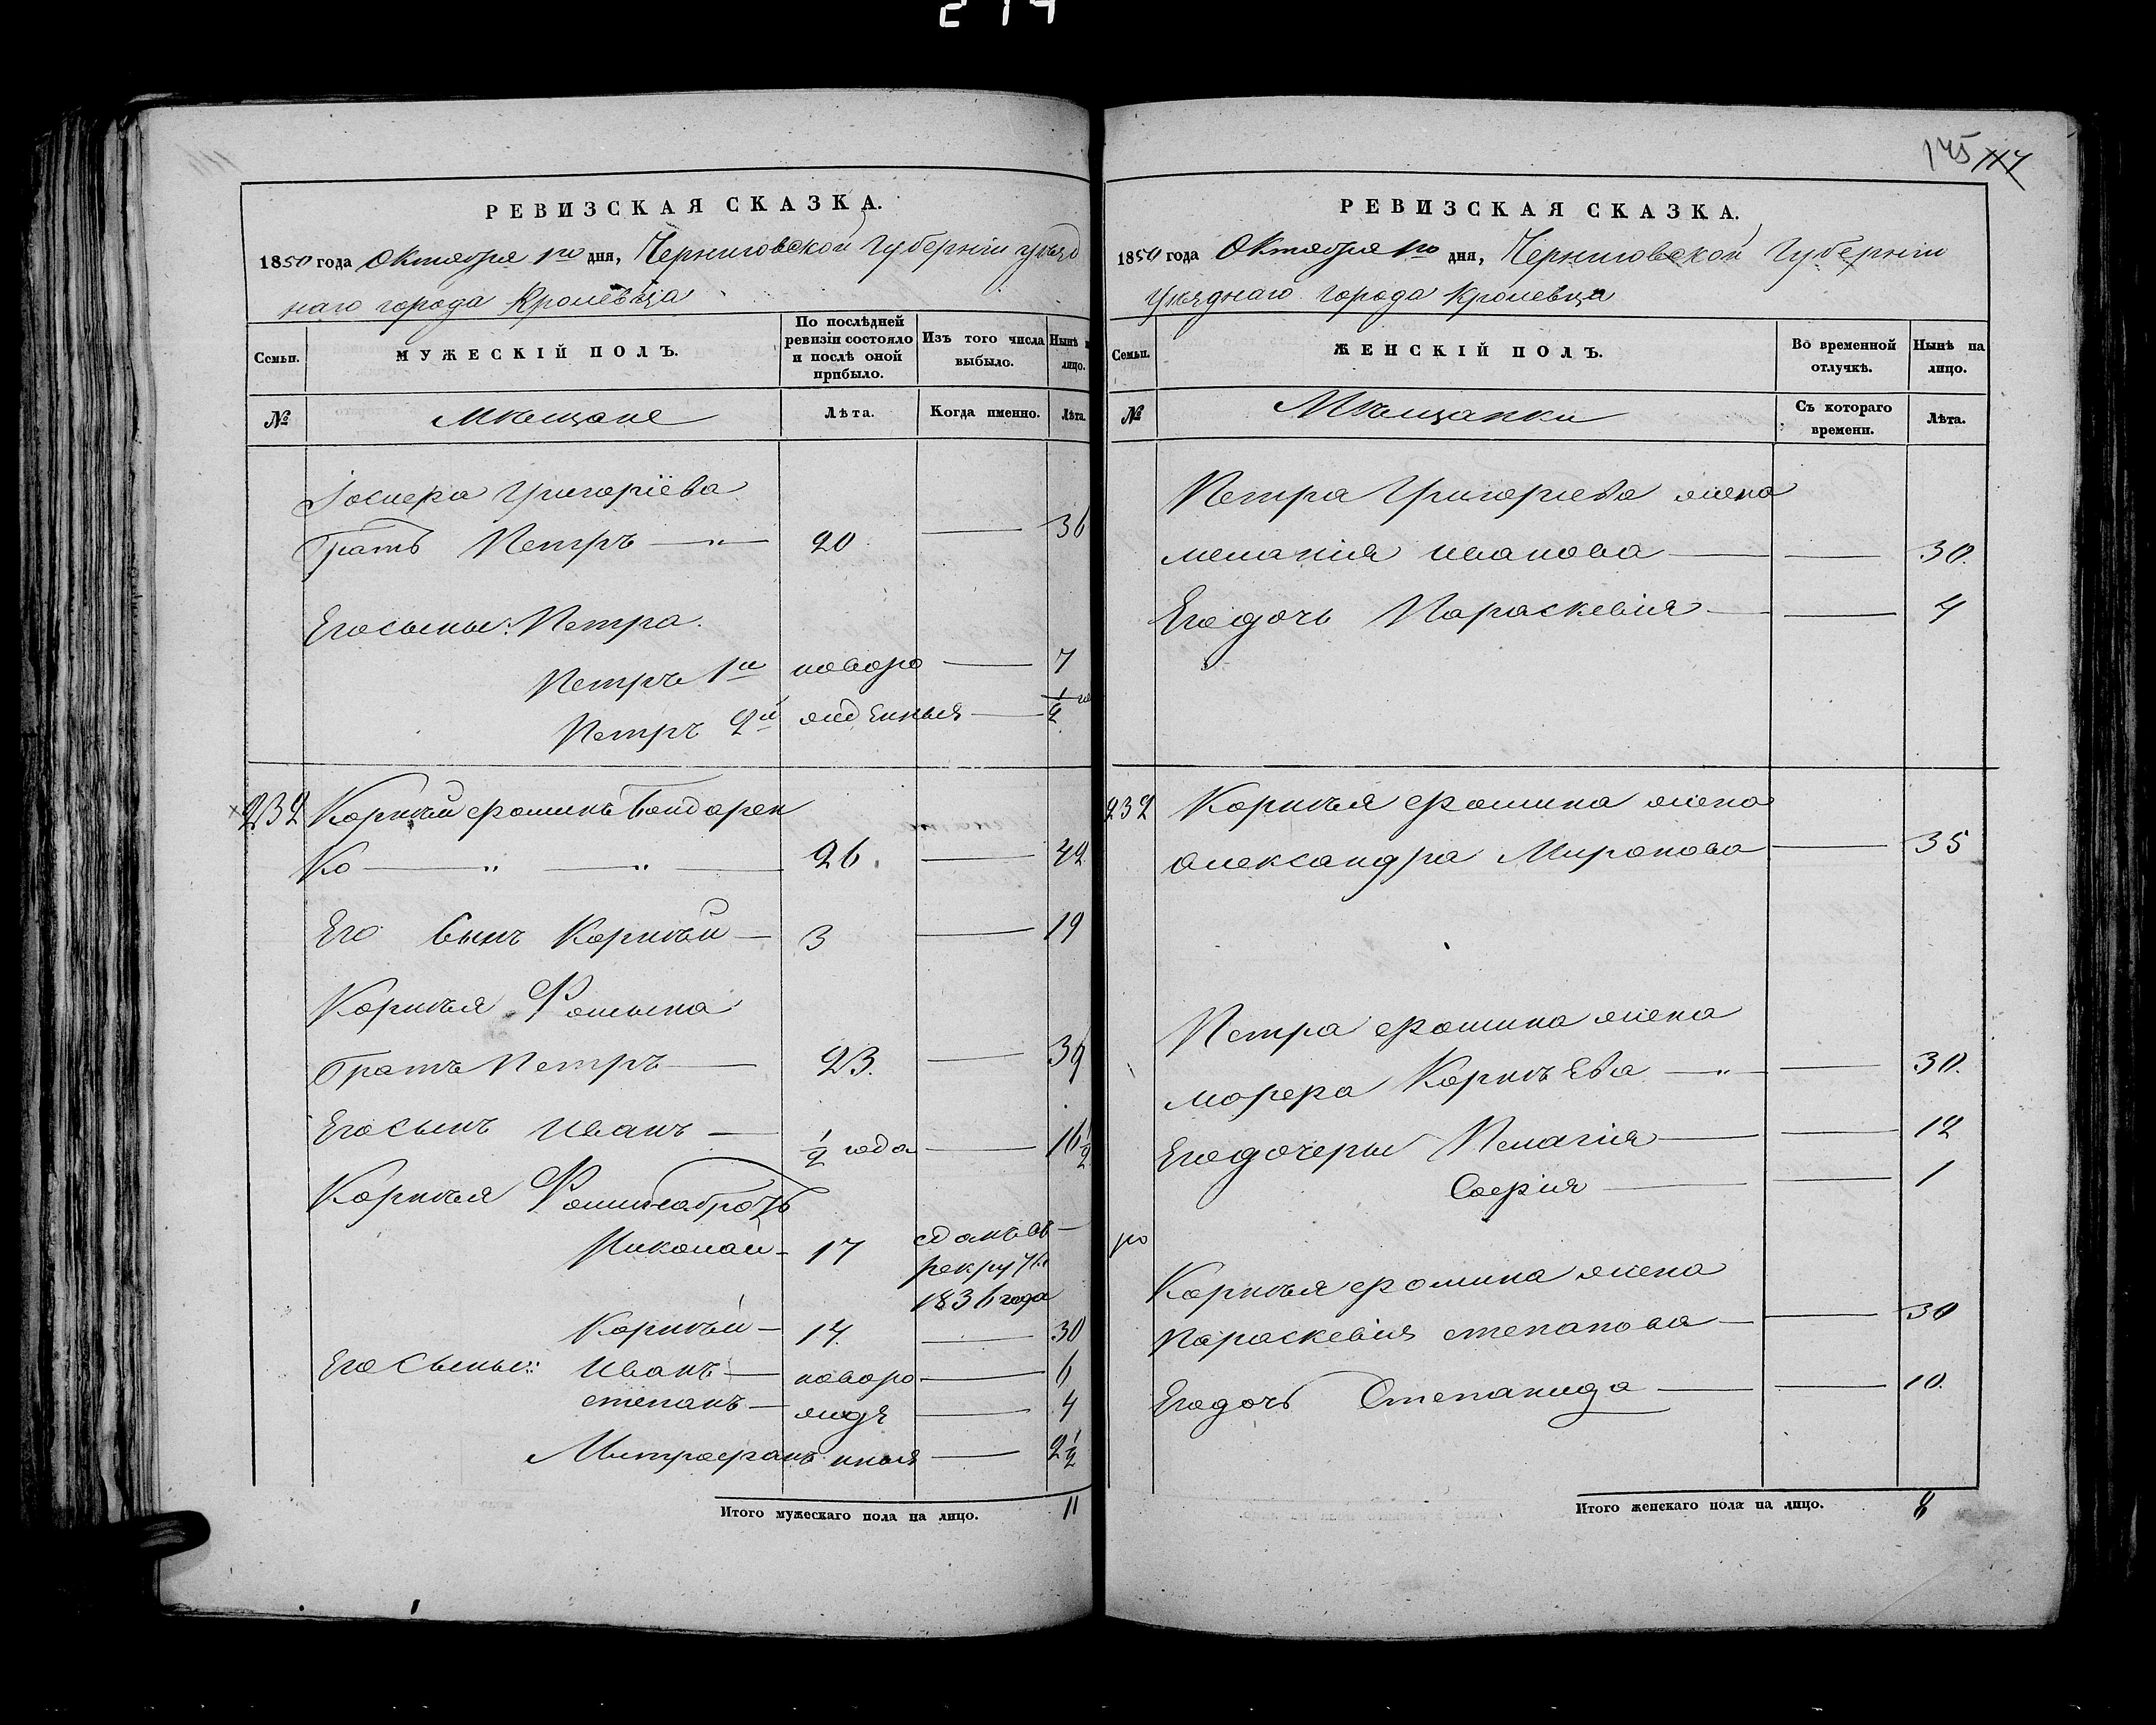 214
РЕВИЗСКАЯ СКАЗКА.
1850 года Октября 1го дня, Черниговской Губерніи уѣзд
наго города Кролевца
Семьи.
МУЖЕСКІЙ ПОЛЪ.
По послѣдней ревизіи состояло и послѣ оной прибыло.
Изъ того числа выбыло.
Нынѣ н лицо.
№
Мѣщане
Лѣта.
Когда именно.
Лѣта.
Іосифа Григоріева
Братъ Петръ — " — 20 — 36
Его сыны: Петра.
Петръ 1й новоро — 7
Петръ 2й жденныя — 1/2 го
232 Корнѣй Фоминъ Бондарен
ко — " — " — 26. — 42
Его Сынъ Корнѣй — 3 — 19
Корнѣя Фомина
Братъ Петръ — 23. — 39
Его сынъ Иванъ — 1/2 года — 16 1/2
Корнѣя Фомина братъ
Николай — 17 сданъ въ —
рекруты
1836 года
Корнѣй — 14. — 30
Его Сыны: Иванъ — новоро — 6
Степанъ — жде — 4
Митрофанъ нныя — 2 1/2
Итого мужескаго пола на лицо. 11
175 117
РЕВИЗСКАЯ СКАЗКА.
1850 года Октября 1го дня, Черниговской Губерніи
Уѣзднаго города Кролевца
Семьи.
ЖЕНСКІЙ ПОЛЪ.
Во временной отлучкѣ.
Нынѣ на лицо.
№
Мѣщанки
Съ котораго времени.
Лѣта.
Петра Григорiева жена
Меланія Иванова — — 30.
Его дочь Параскевія — — 4
232 Корнѣя Фомина жена
Александра Миронова — 35
Петра Фомина жена
Марфа Корнѣева — " — — 30.
Его дочери Пелагія — — 12
Софія — — 1
Корнѣя Фомина жена
Параскевія Степанова — — 30
Его дочь Степанида — — 10.
Итого женскаго пола на лицо. 8